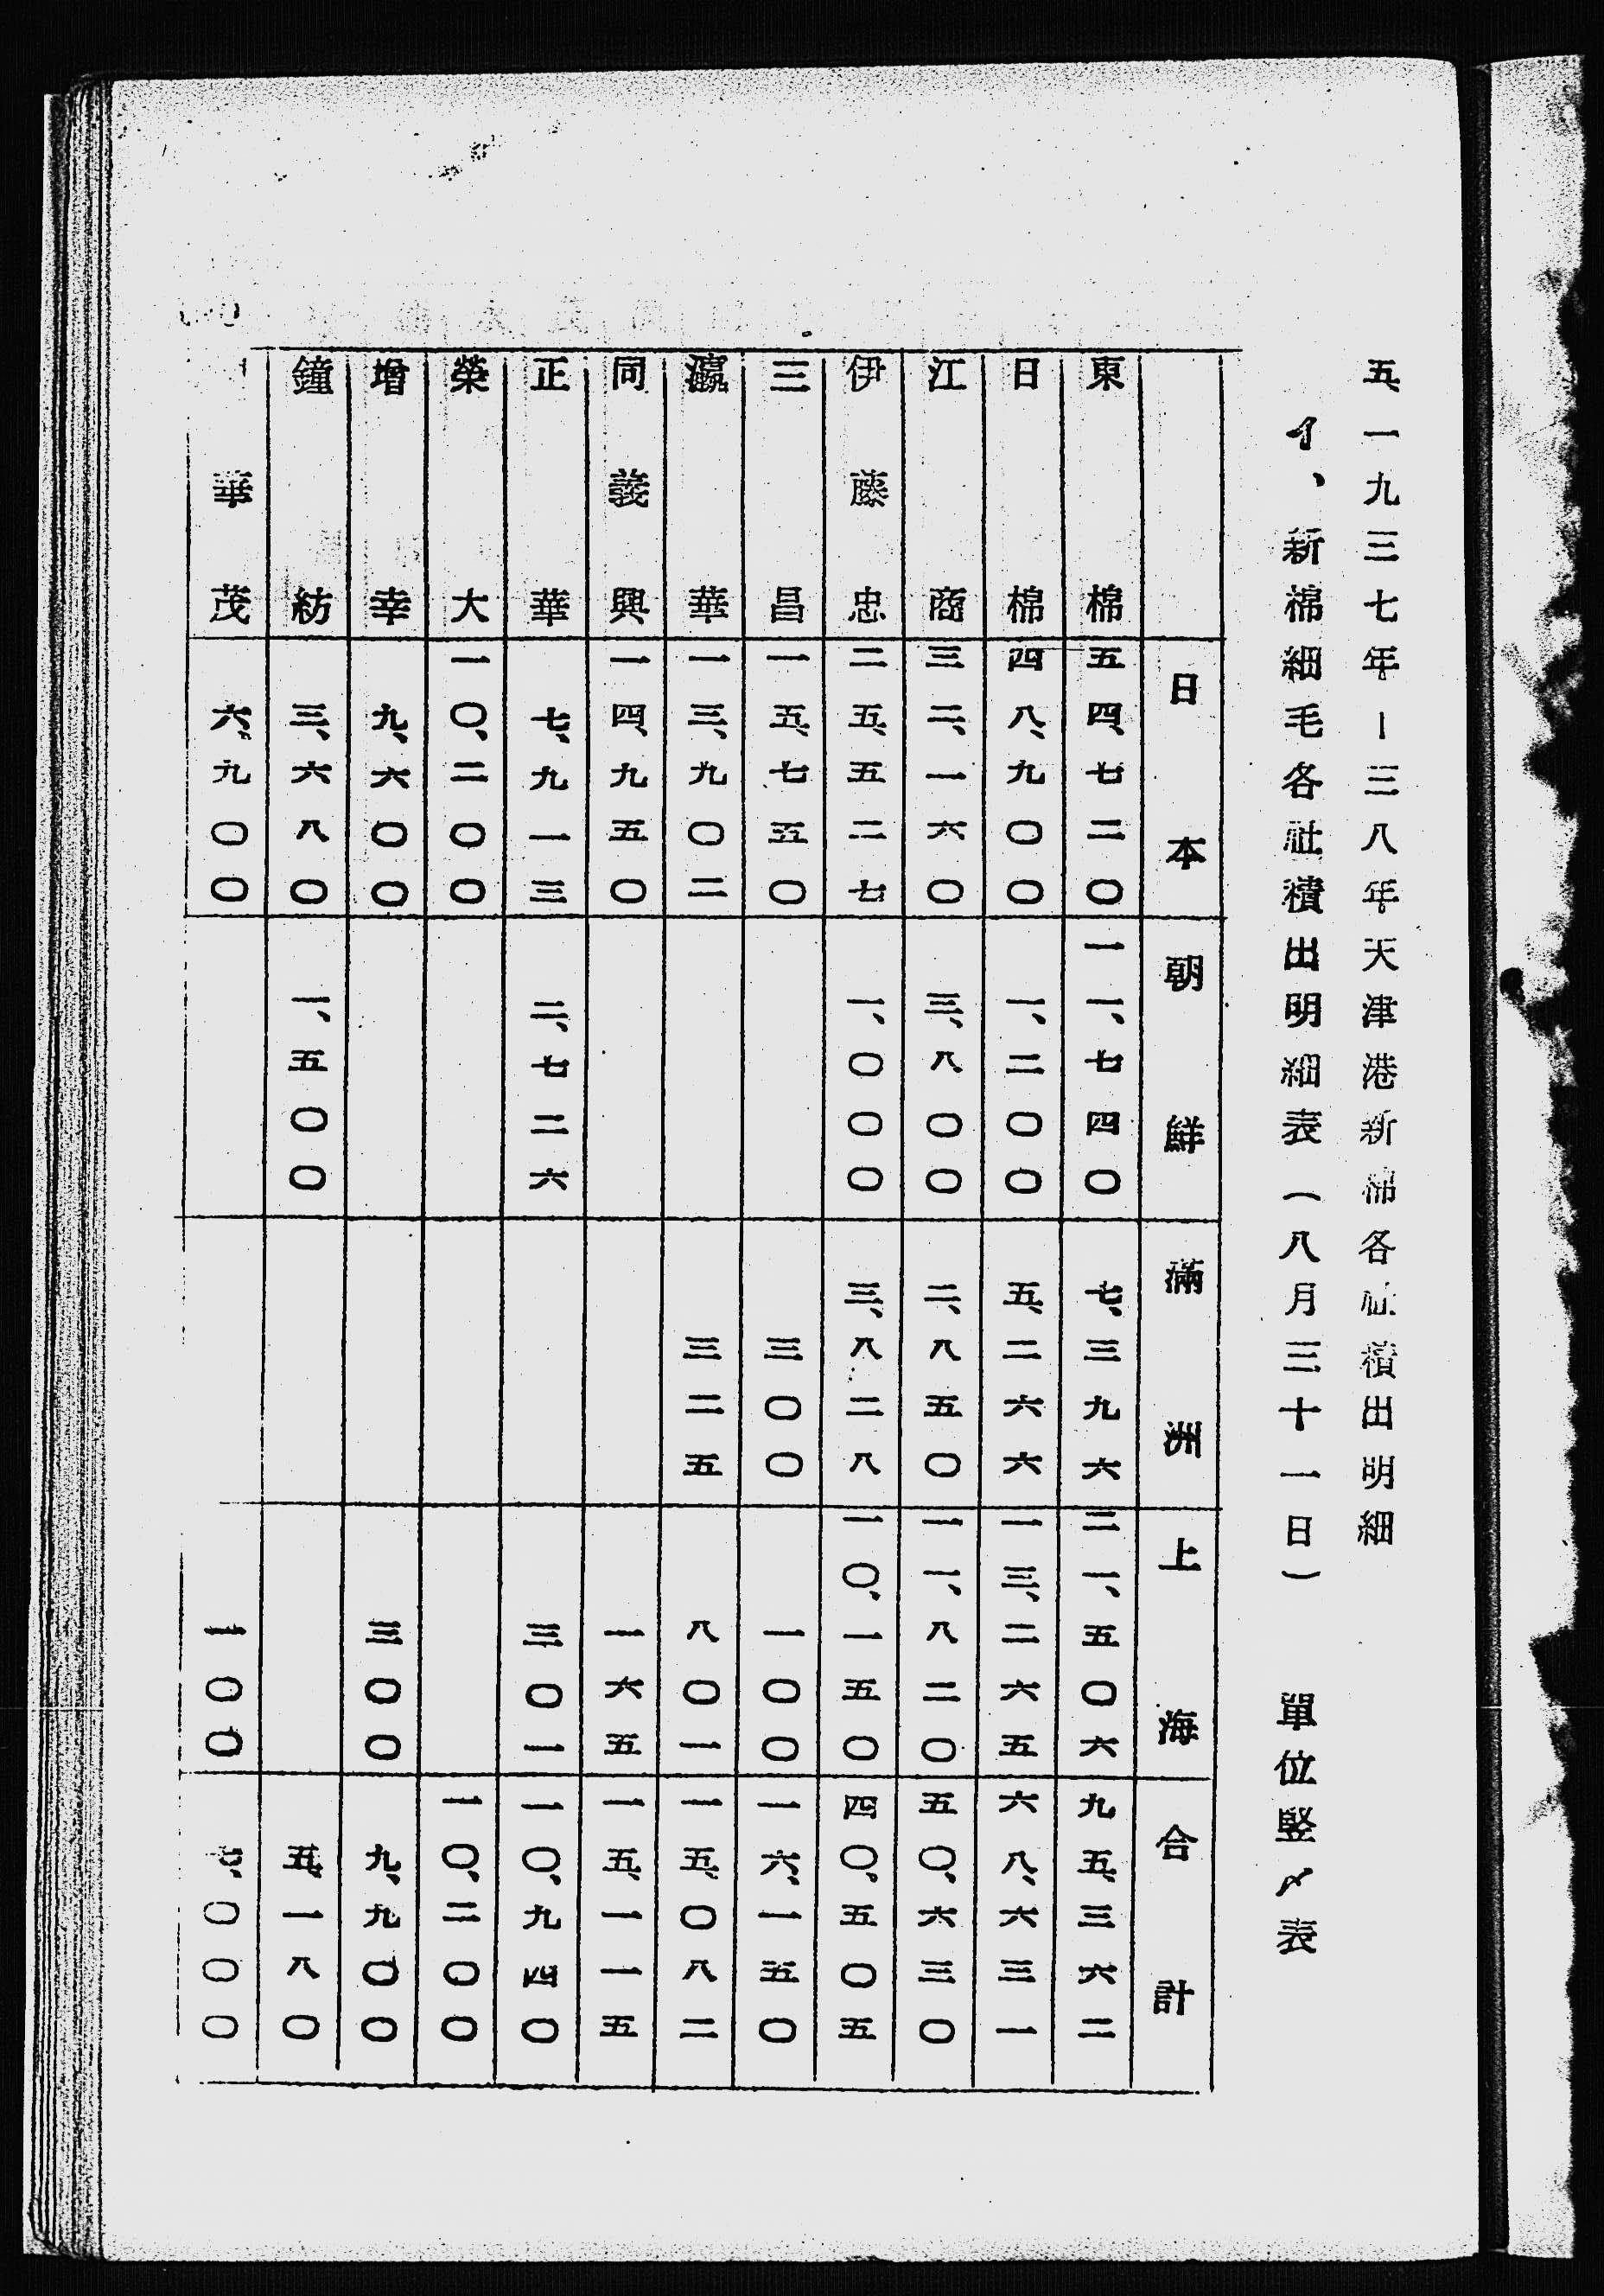 五、一九三七年ー三八年天津港新棉各社積出明細
イ、新棉細毛各社積出明細表（八月三十一日）　單位竪〆表
日本　朝鮮　滿洲　上海　合計
東棉　五四、七二〇　一一、七四〇　七、三九六　二一、五〇六　九五、三六二
日棉　四八、九〇〇　一、二〇〇　五、二六六　一三、二六五　六八、六三一
江商　三二、一六〇　三、八〇〇　二、八五〇　一一、八二〇　五〇、六三〇
伊藤忠　二五、五二七　一、〇〇〇　三、八二八　一〇、一五〇　四〇、五〇五
三昌　一五、七五〇　三〇〇　一〇〇　一六、一五〇
瀛華　一三、九〇二　三二五　八〇一　一五、〇八二
同義興　一四、九五〇　一六五　一五、一一五
正華　七、九一三　二、七二六　三〇一　一〇、九四〇
榮大　一〇、二〇〇　一〇、二〇〇
增幸　九、六〇〇　三〇〇　九、九〇〇
鐘紡　三、六八〇　一、五〇〇　五、一八〇
華茂　六、九〇〇　一〇〇　七、〇〇〇